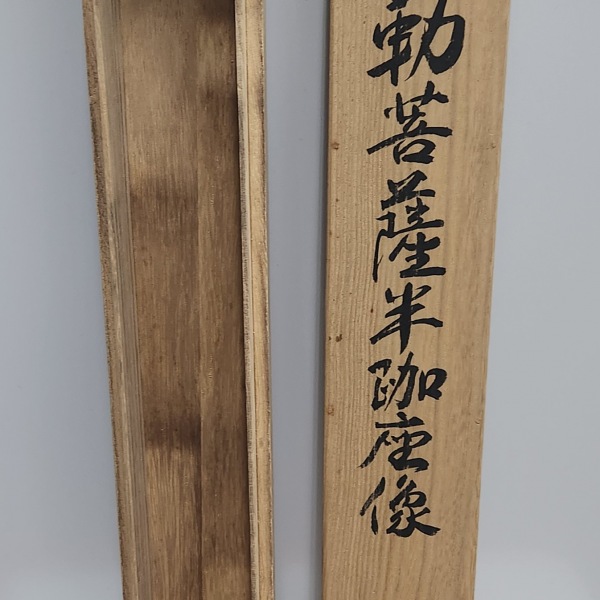 勒菩薩半跏座像